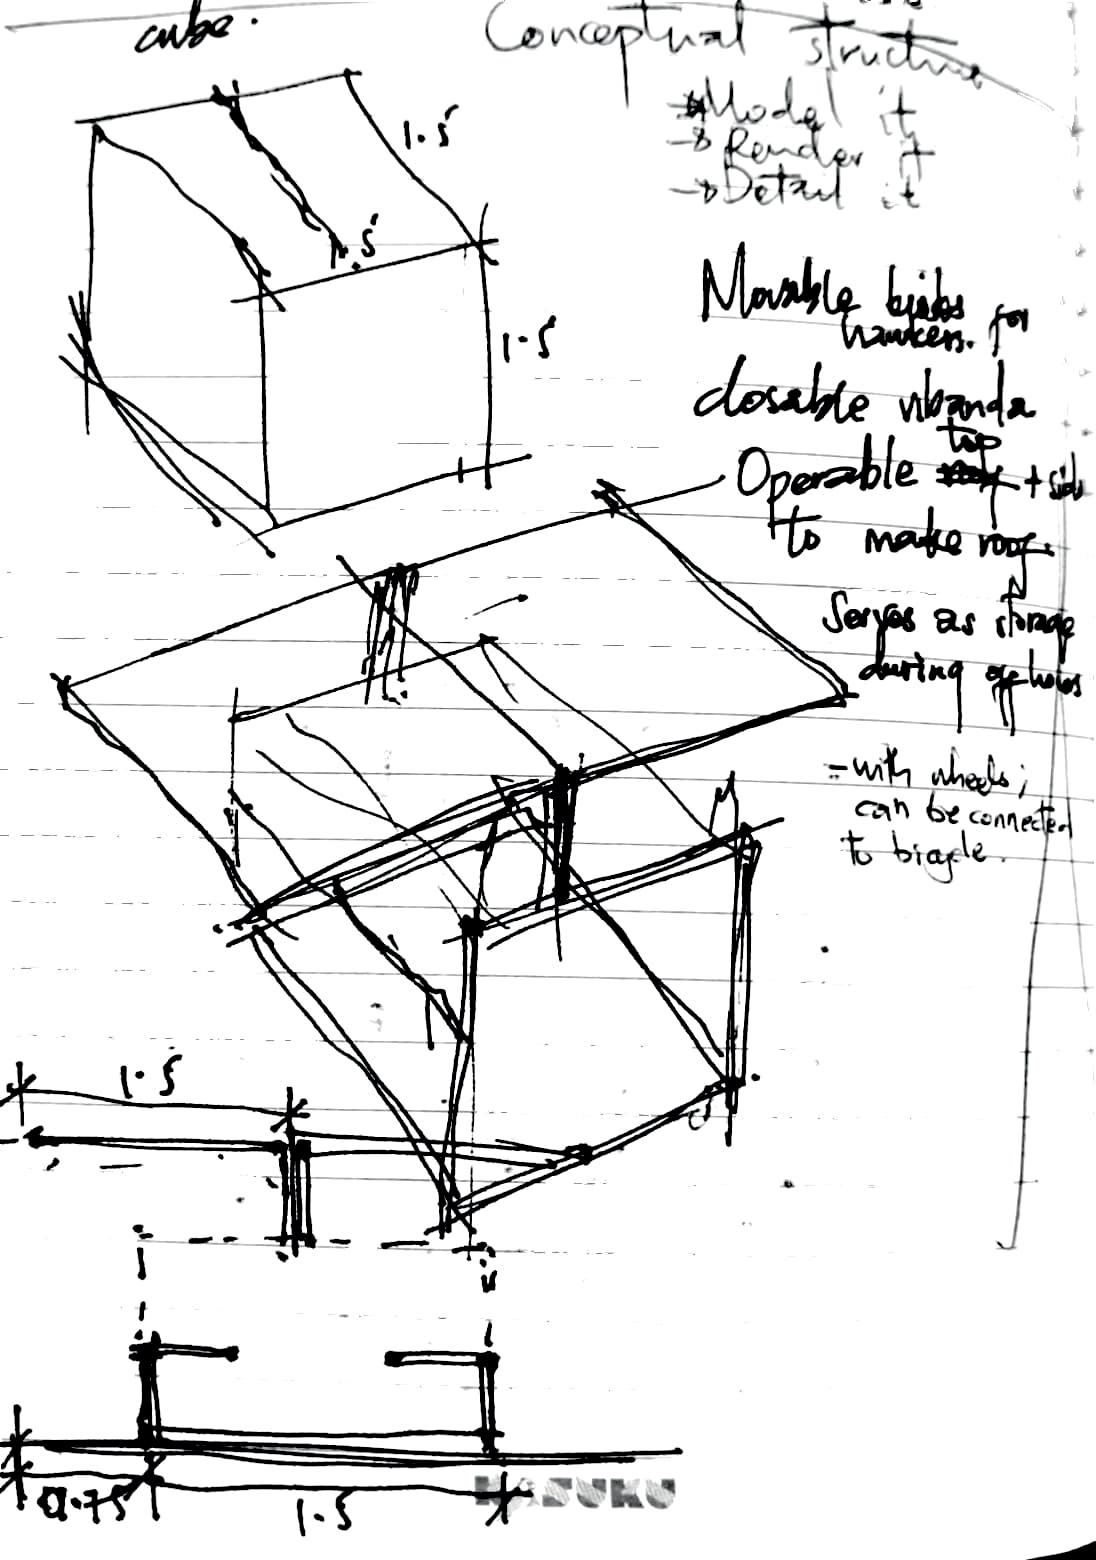 cube.
Conceptual structure
Model it
→ Render it
→ Detail it
1.5
1.5
1.5
Movable for
hawkers.
closable vibanda
top
Operable + side
to make roof.
Serves as storage
during off hours
- with wheels;
can be connected
to bicycle.
1.5
0.75
1.5
KASUKU